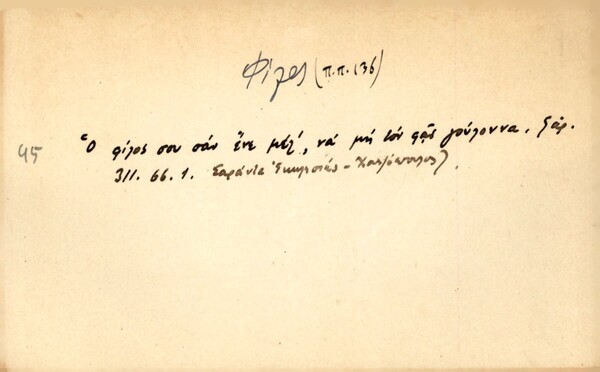 Φίλος (π.π. 136)
45 Ὁ φίλος σου σάν ἔνε μέλι, νά μή τόν φᾷς γούλοννα.
311. 66. 1. Σαράντα Ἐκκλησιές -